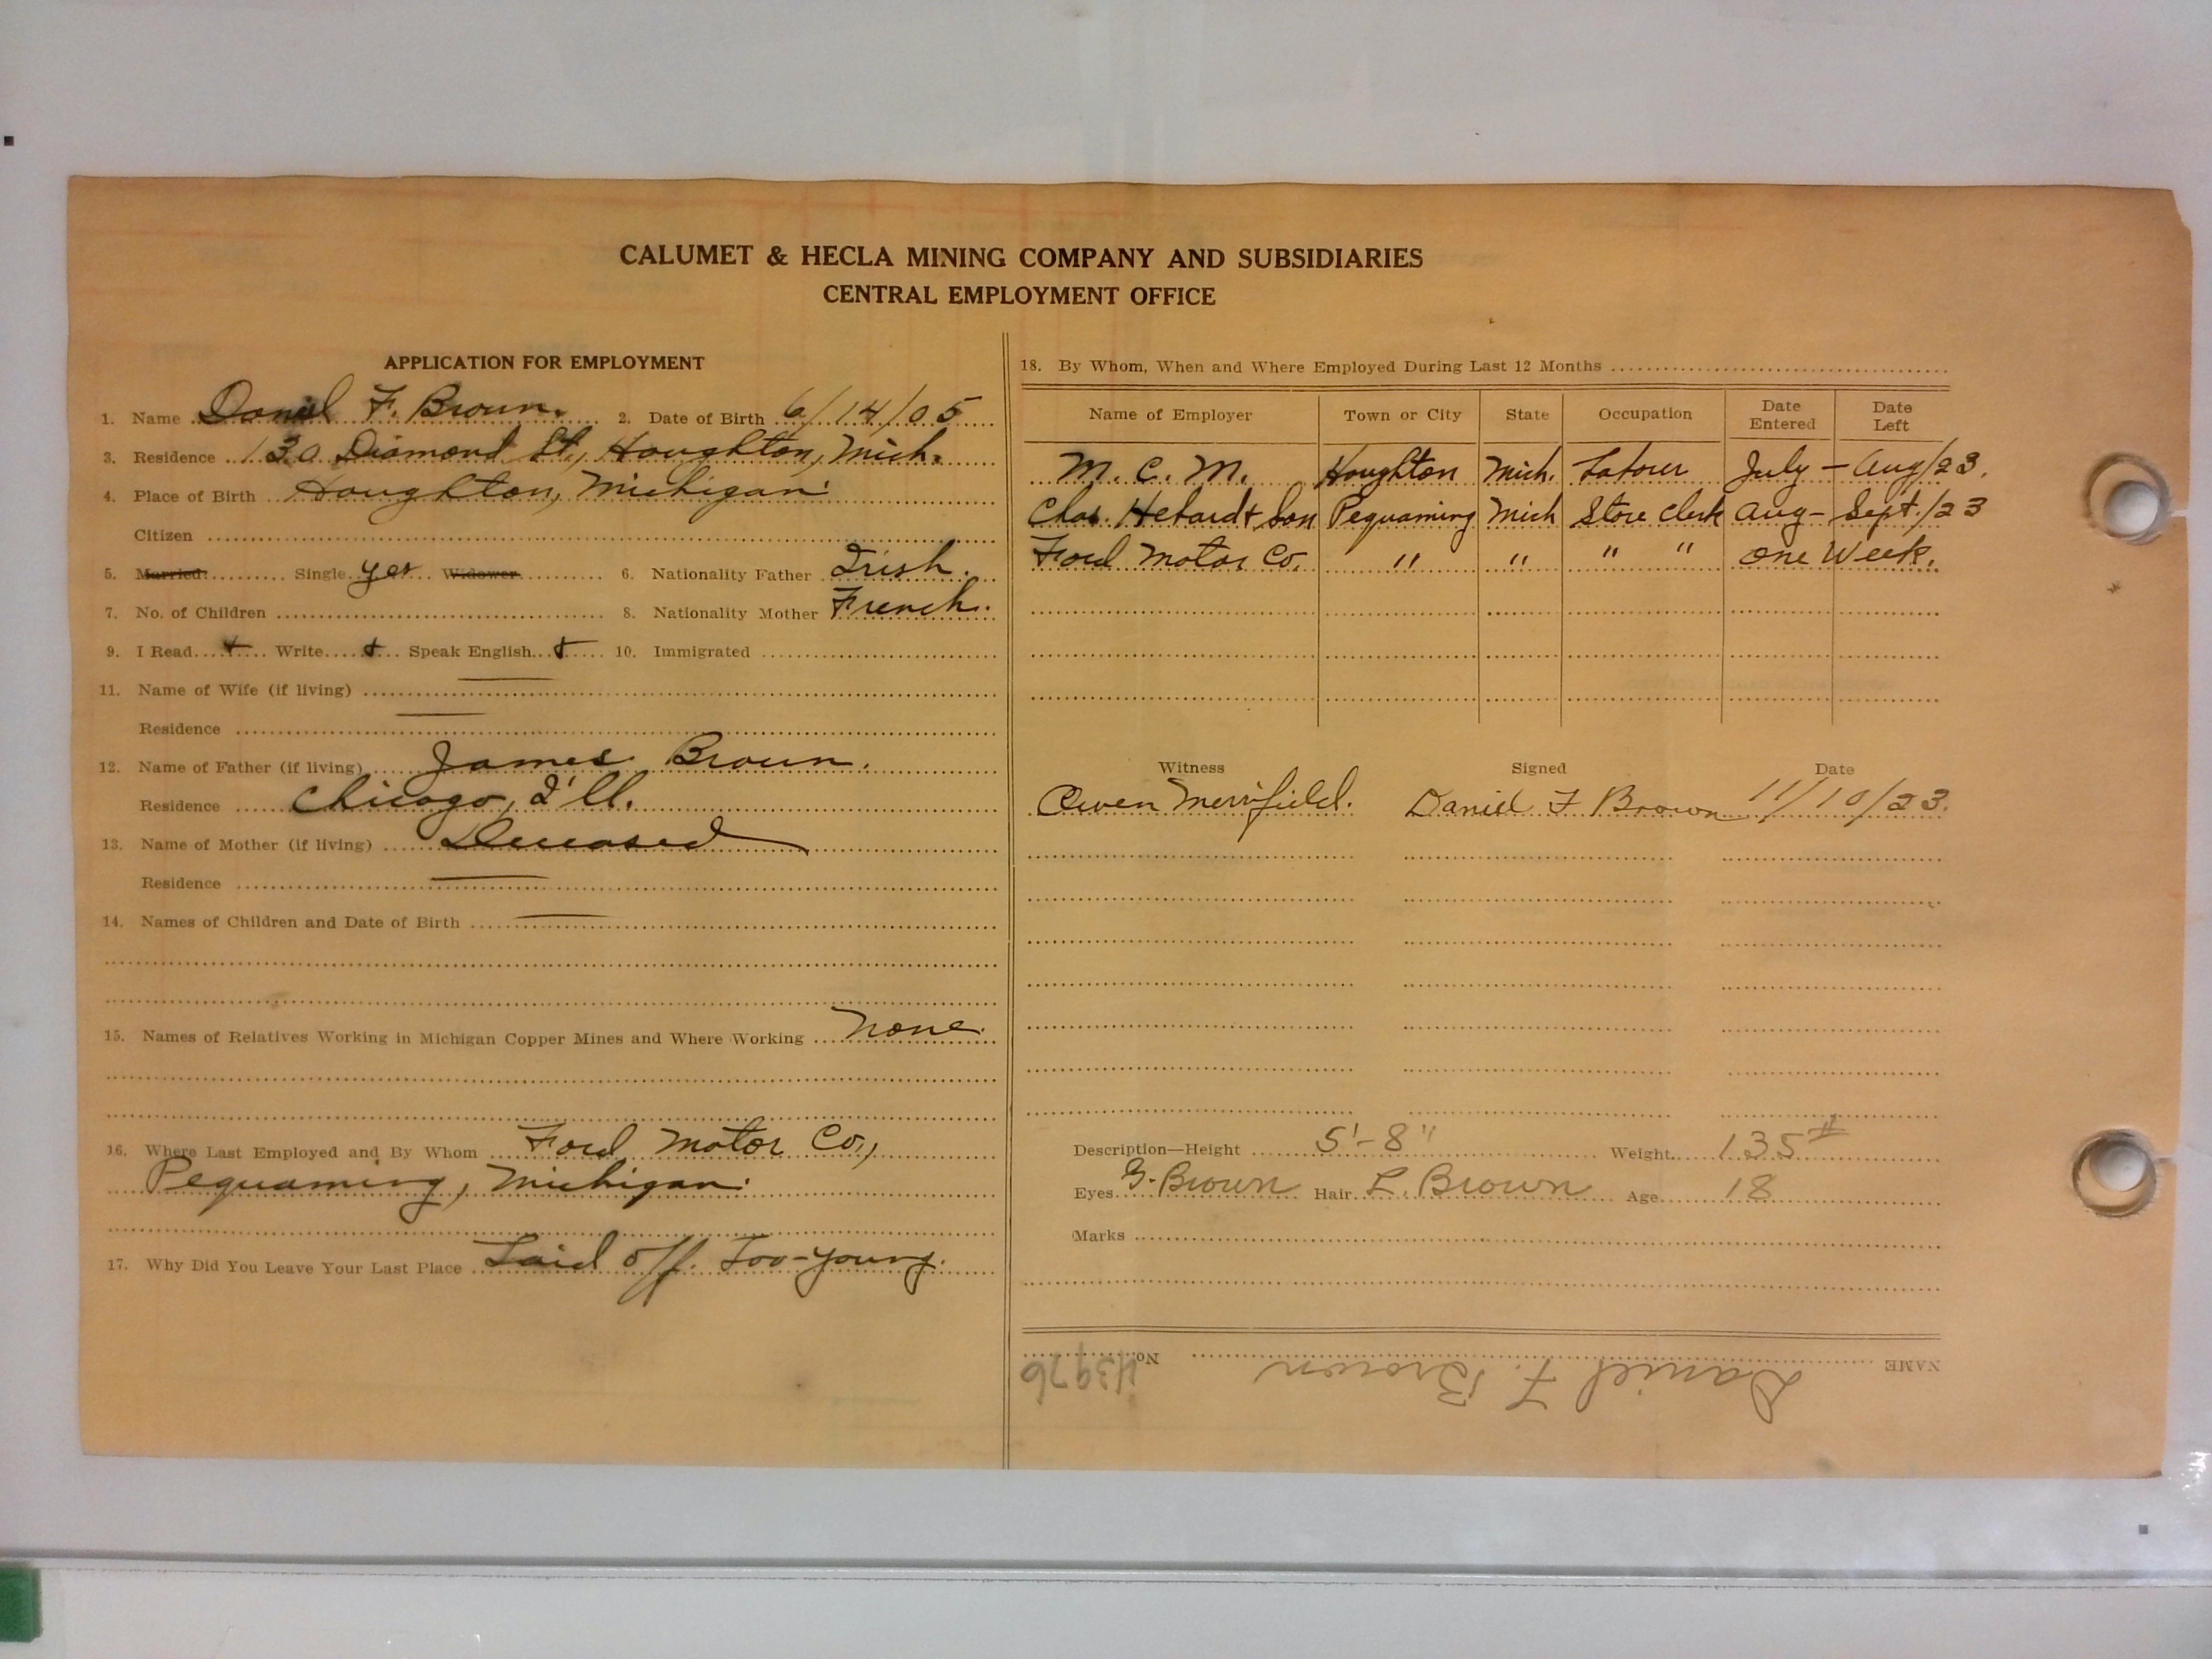 CALUMET & HECLA MINING COMPANY AND SUBSIDIARIES
CENTRAL EMPLOYMENT OFFICE
APPLICATION FOR EMPLOYMENT
1. Name Daniel F. Brown. 2. Date of Birth 6/14/05
3. Residence 130 Diamond St., Houghton, Mich.
4. Place of Birth Houghton, Michigan.
Citizen
5. Married. Single yes Widower 6. Nationality Father Irish.
7. No. of Children 8. Nationality Mother French.
9. I Read + Write + Speak English + 10. Immigrated
11. Name of Wife (if living) —
Residence —
12. Name of Father (if living) James Brown.
Residence Chicago, Ill.
13. Name of Mother (if living) Deceased
Residence —
14. Names of Children and Date of Birth —
15. Names of Relatives Working in Michigan Copper Mines and Where Working None.
16. Where Last Employed and By Whom Ford Motor Co.,
Pequaming, Michigan.
17. Why Did You Leave Your Last Place Laid off. Too-young.
18. By Whom, When and Where Employed During Last 12 Months
Name of Employer Town or City State Occupation Date Entered Date Left
M. C. M. Houghton Mich. Labour July – Aug/23.
Chas. Hebard & Son Pequaming Mich Store Clerk Aug – Sept./23
Ford Motor Co. " " " " One Week.
Witness Signed Date
Owen Merrifield. Daniel F Brown 11/10/23.
Description—Height 5'-8" Weight 135#
Eyes G. Brown Hair L. Brown Age 18
Marks
NAME Daniel F. Brown No. 43976